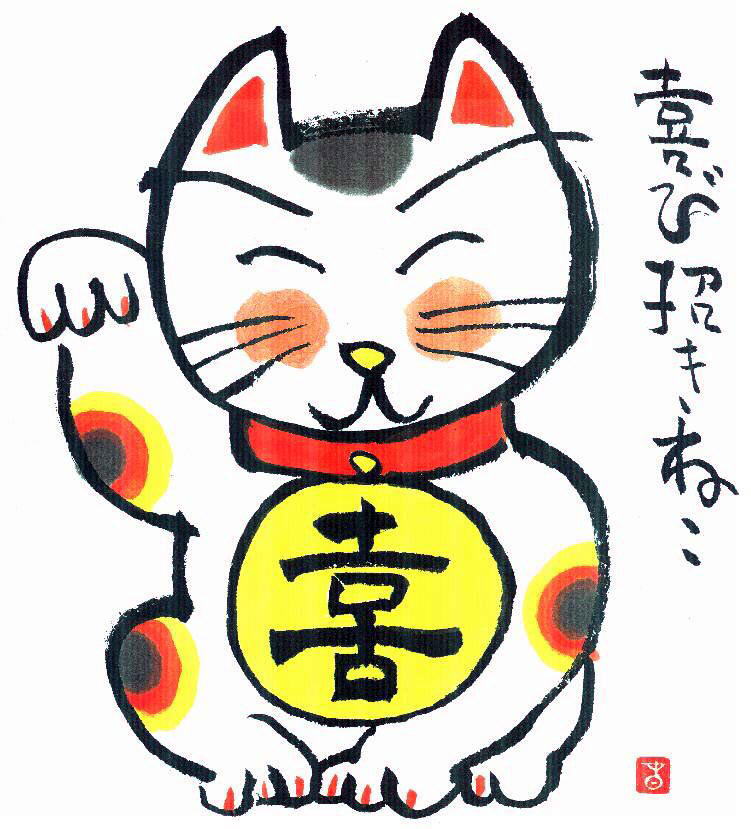 喜び招きねこ
喜